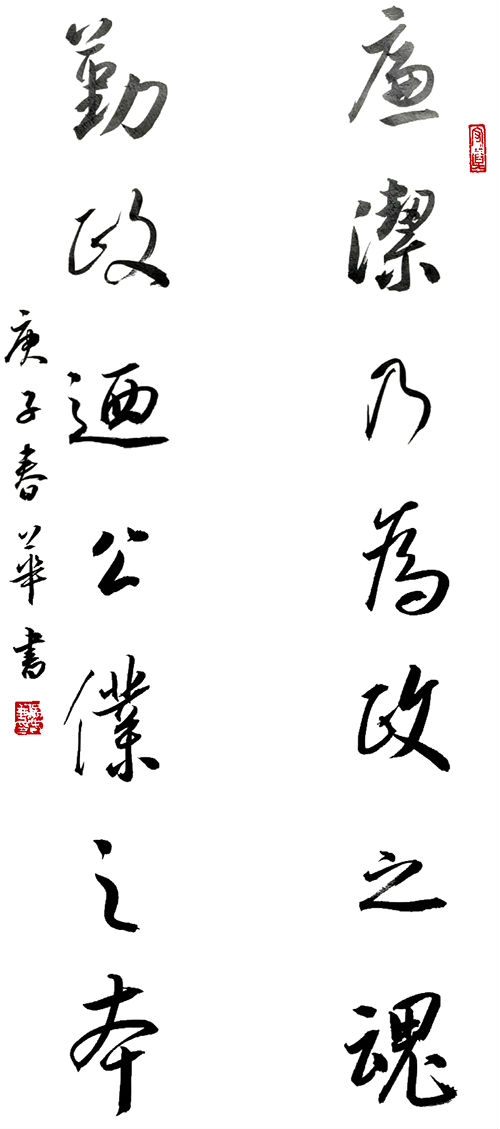 廉潔乃為政之魂
勤政迺公僕之本
庚子春華書